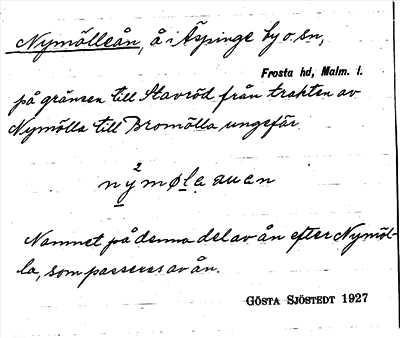 Nymölleån, å i Äspinge by o. sn,
Frosta hd, Malm. l.
på gränsen till Stavröd från trakten av
Nymölla till Bromölla ungefär
2
nymøla auen
Namnet på denna del av ån efter Nymöl-
la, som passeras av ån.
GÖSTA SJÖSTEDT 1927